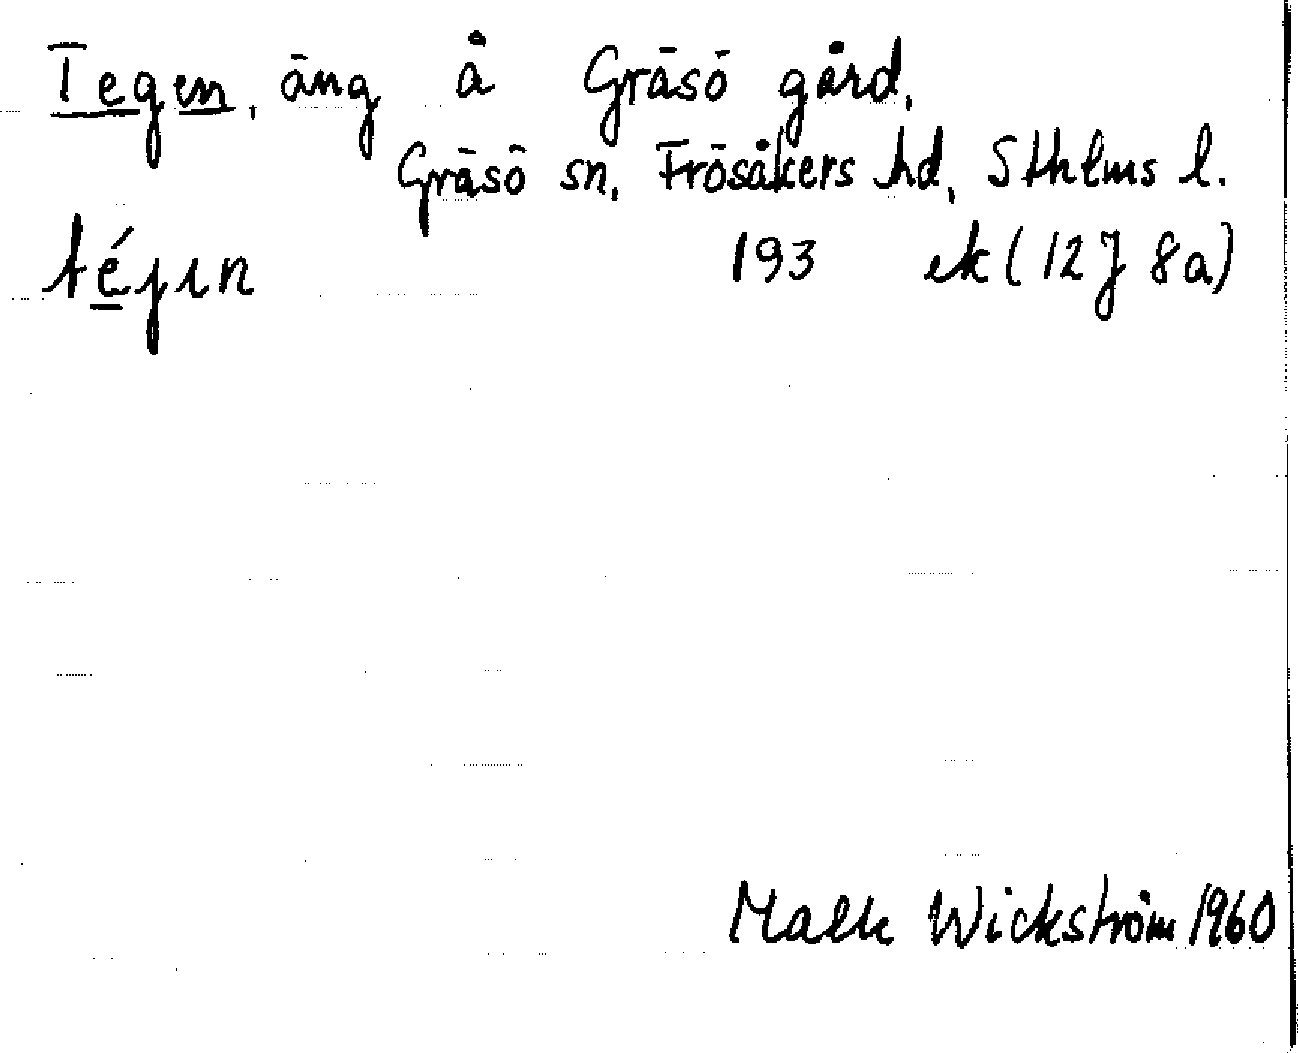 Tegen, äng å Gräsö gård,
Gräsö sn, Frösåkers hd, Sthlms l.
téjɩn 193 ek (12J 8a)
Wickström 1960